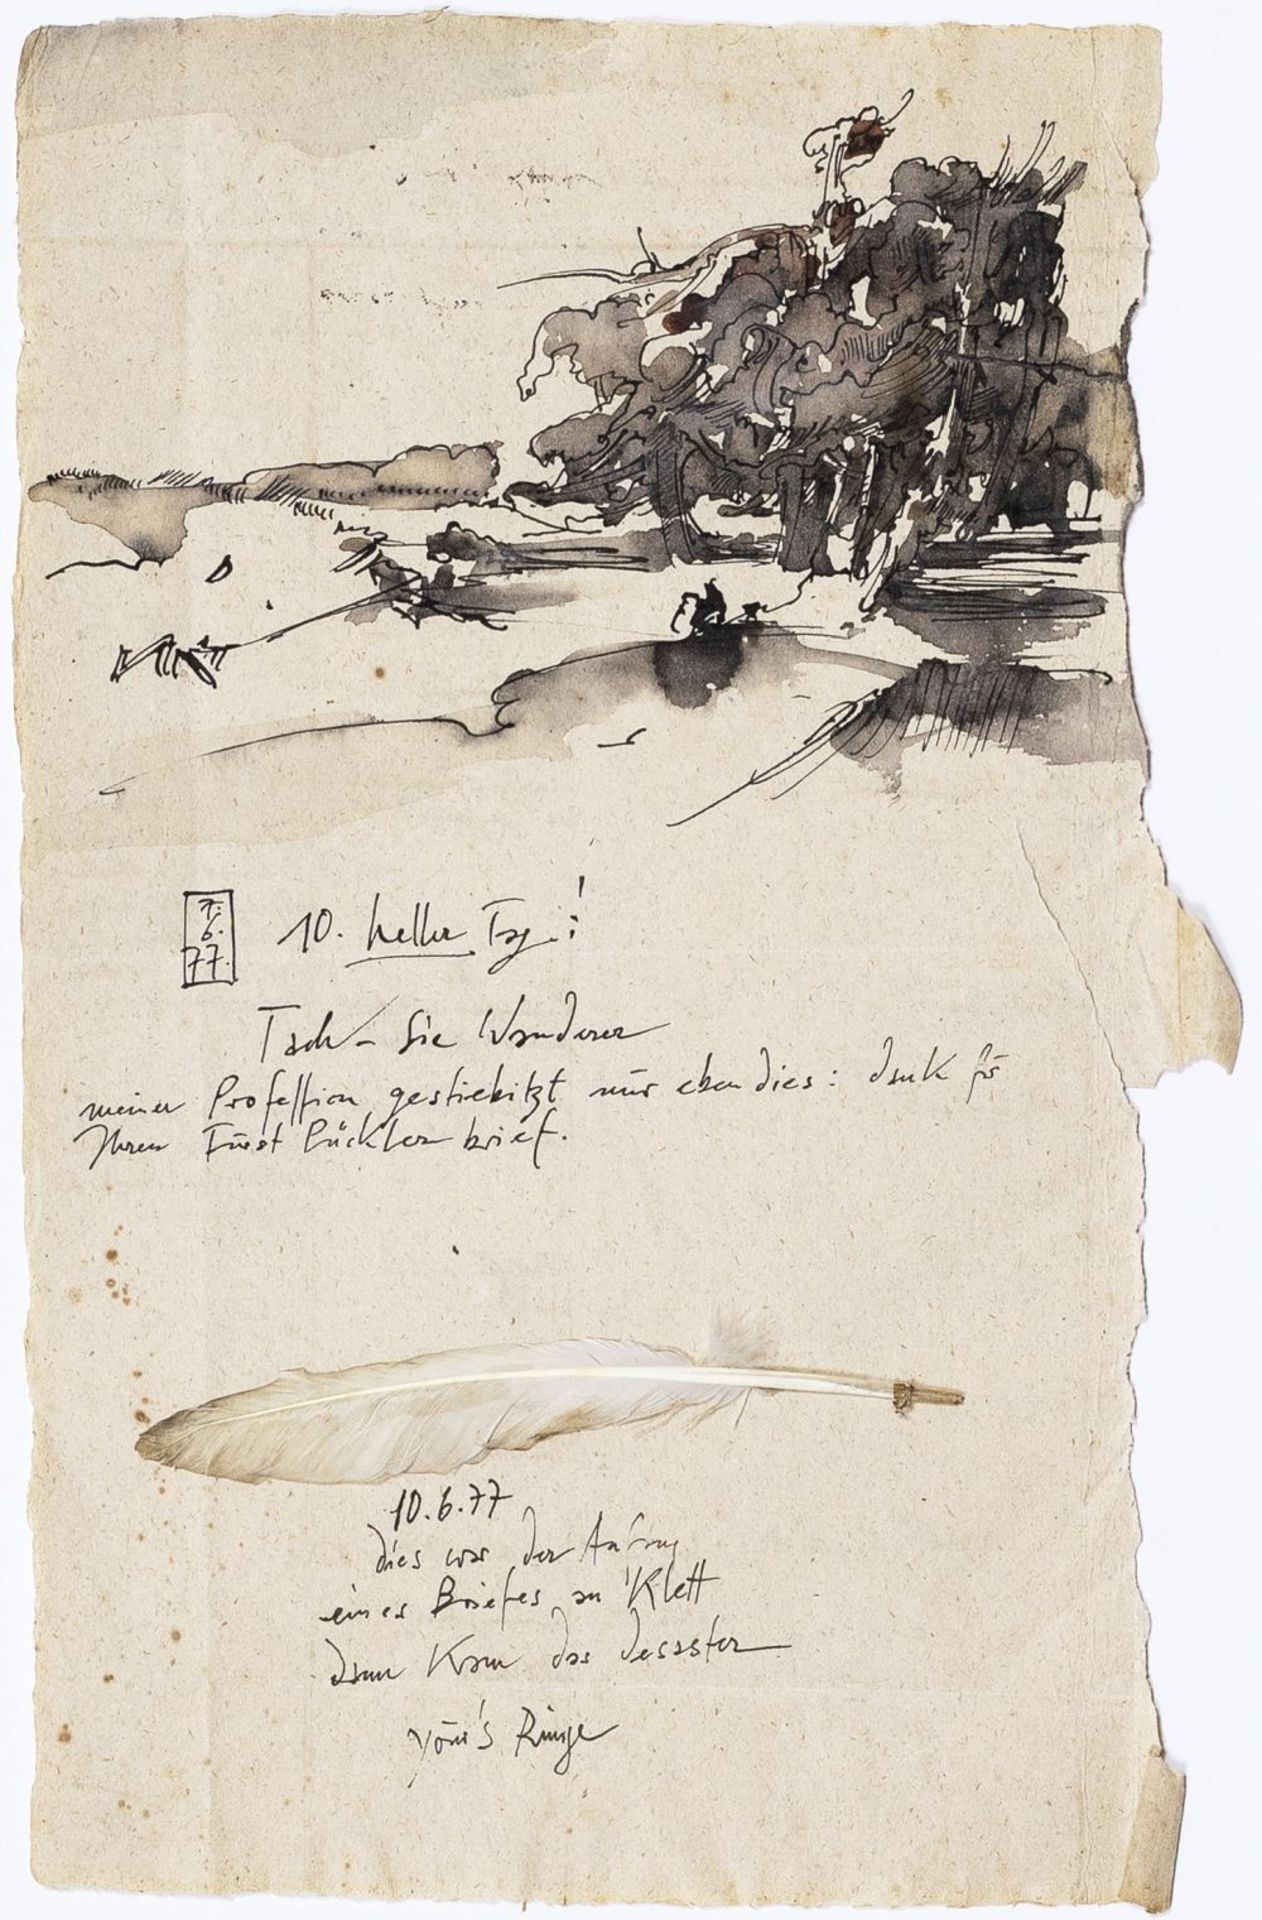 7.
6.
77.
10. heller Tag!
Tach – Sie Wanderer
meiner Profeſſion gestiebitzt nur eben dies: dank für
Ihren Fürst Pückler brief.
10.6.77
dies war der Anfang
eines Briefes an Klett
dann kam das desaster
Ihr's Ringe